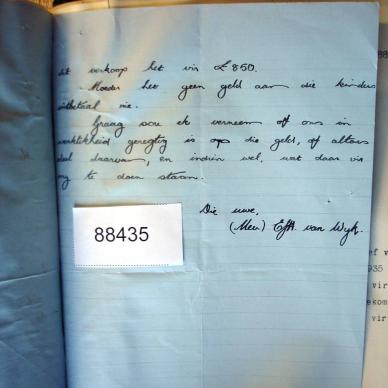 dit verkoop het vir £850.
Moeder het geen geld aan die kinders
uitbetaal nie.
Graag sou ek verneem of ons in
werklikheid geregtig is op die geld, of altans
deel daarvan, en indien wel, wat daar vir
my te doen staan.
Die uwe,
(Mev.) van Wyk.
88435
ef v
935
vir
ekom
vir